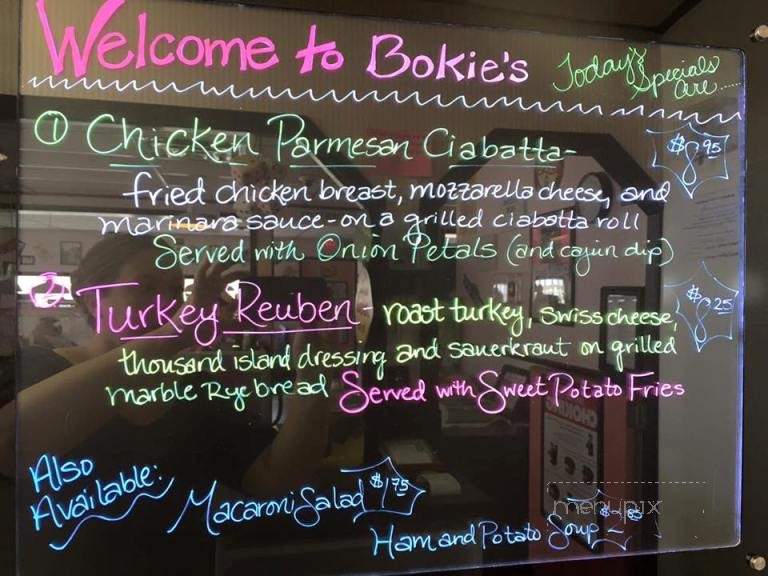 Welcome to Bokie's
Today's
Specials
are.....
① Chicken Parmesan Ciabatta-
$8.95
fried chicken breast, mozzarella cheese, and
marinara sauce - on a grilled ciabatta roll
Served with Onion Petals (and cajun dip)
② Turkey Reuben - roast turkey, swiss cheese,
$8.25
thousand island dressing and sauerkraut on grilled
marble Rye bread Served with Sweet Potato Fries
Also
Available:
Macaroni Salad $1.75
Ham and Potato Soup
menupix